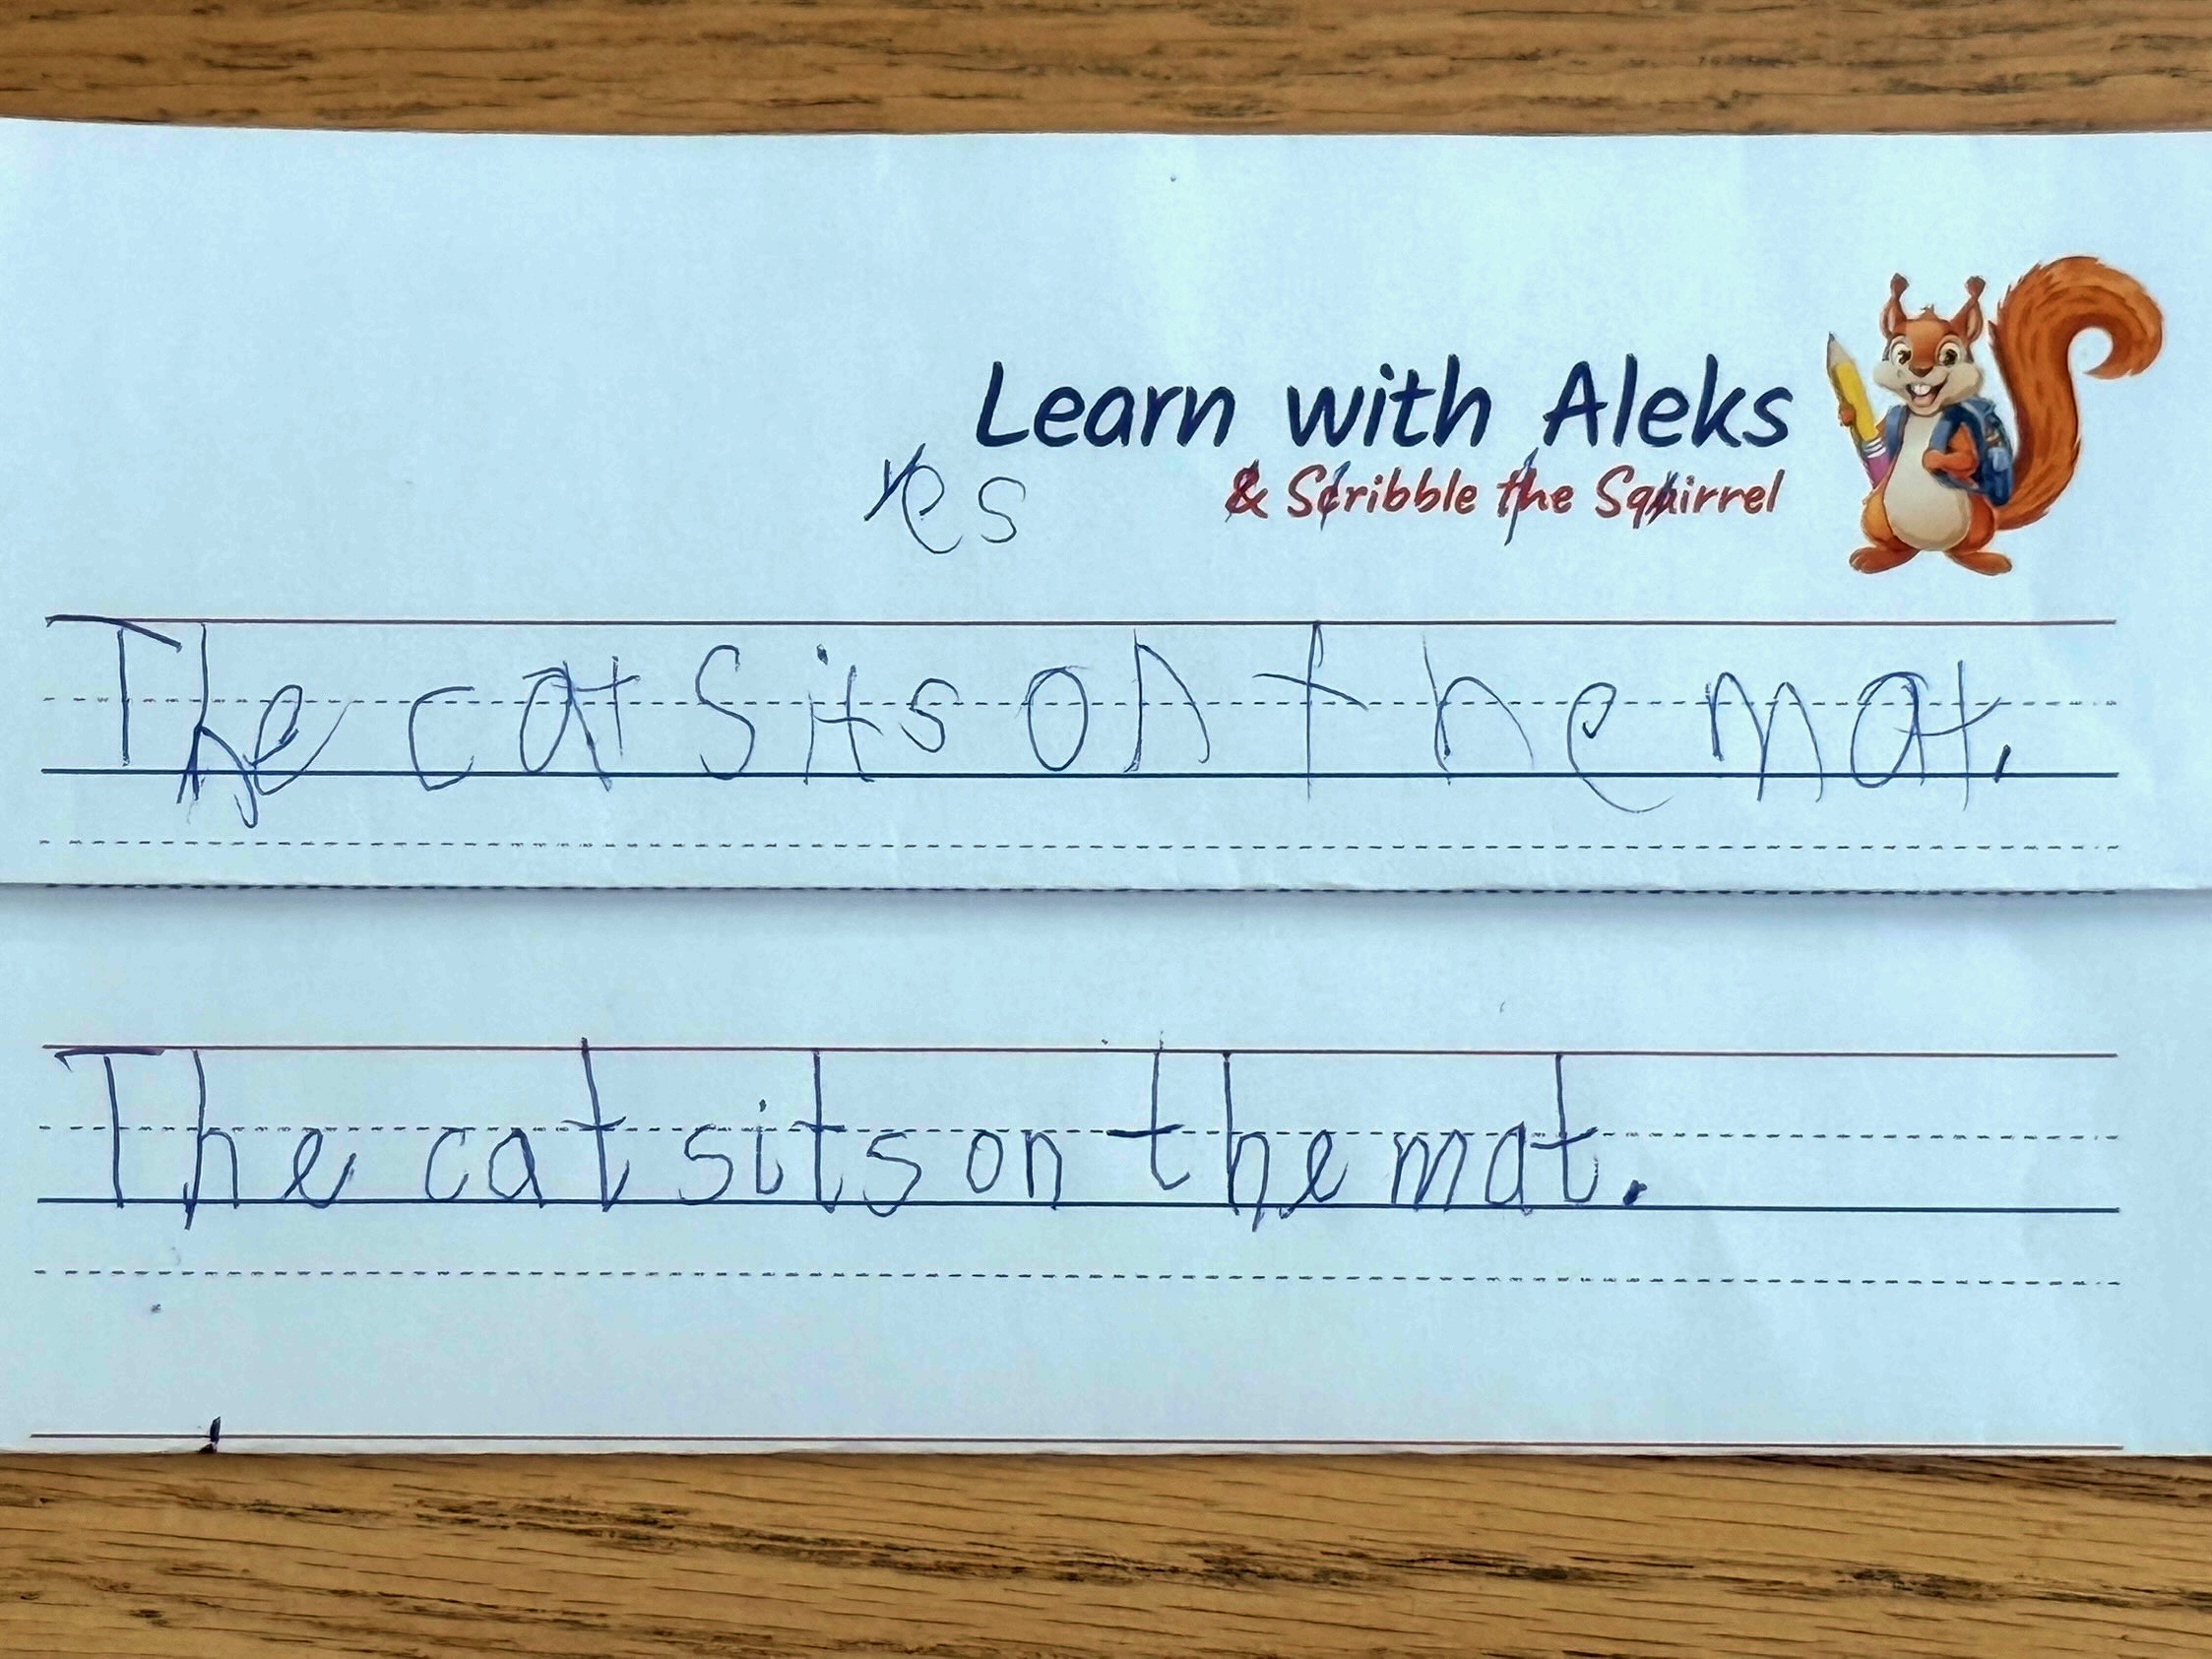 Learn with Aleks
& Scribble the Squirrel
Yes
The cat sits on the mat.
The cat sits on the mat.